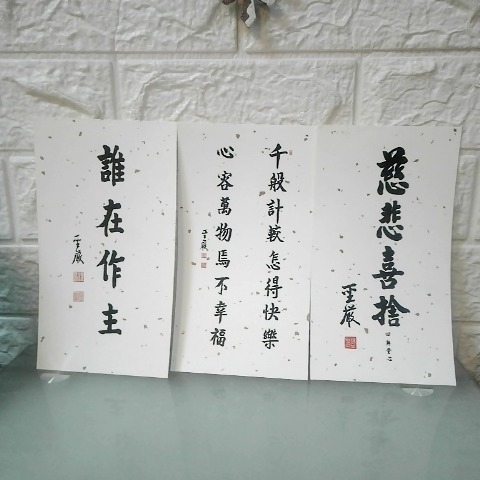 慈悲喜捨
四無量心
聖嚴
千般計較怎得快樂
心容萬物焉不幸福
聖嚴
誰在作主
聖嚴